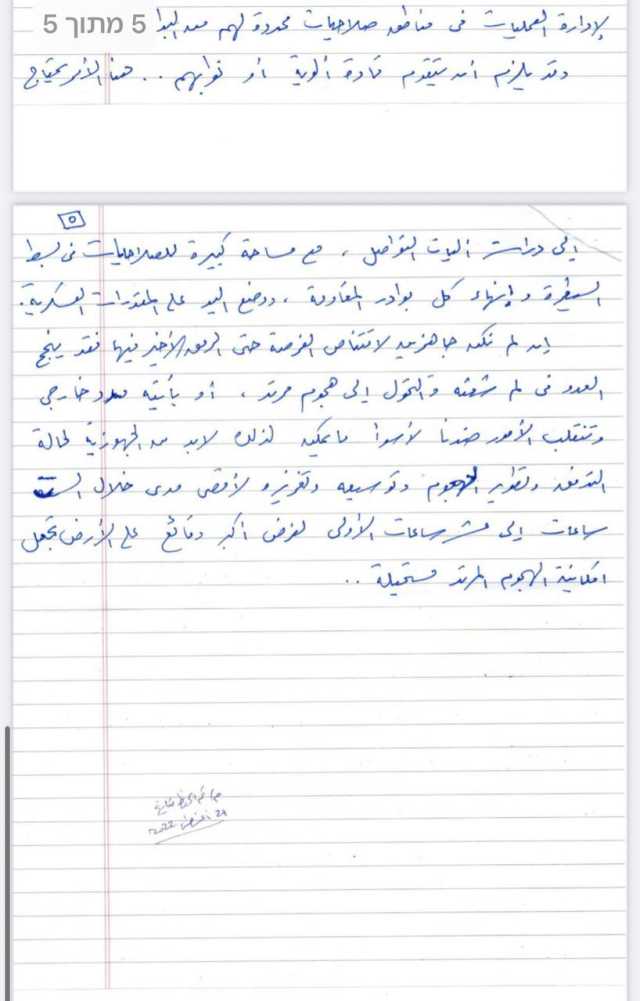 5 מתוך 5
لإدارة العمليات في مناطق صلاحيات محددة لهم منذ البدا
وقد يلزم أن يتقدم قادة ألوية أو نوابهم .. هنا الأمر يحتاج
٥
إلى دراسة آليات التواصل ، مع مساحة كبيرة للصلاحيات في بسط
السيطرة وإنهاء كل بوادر المقاومة ، ووضع اليد على المقدرات العسكرية .
إن لم نكن جاهزين لاقتناص الفرصة حتى الرمق الأخير فيها فقد ينجح
العدو في لم شعثه والتحول إلى هجوم مرتد ، أو يأتيه مدد خارجي
وتنقلب الأمور ضدنا لأسوأ ما يمكن لذلك لابد من الجهوزية لحالة
التدفق وتطوير الهجوم وتوسيعه وتعزيزه لأقصى مدى خلال الست
ساعات إلى عشر ساعات الأولى لفرض أكبر وقائع على الأرض تجعل
امكانية الهجوم المرتد مستحيلة ..
24 2022